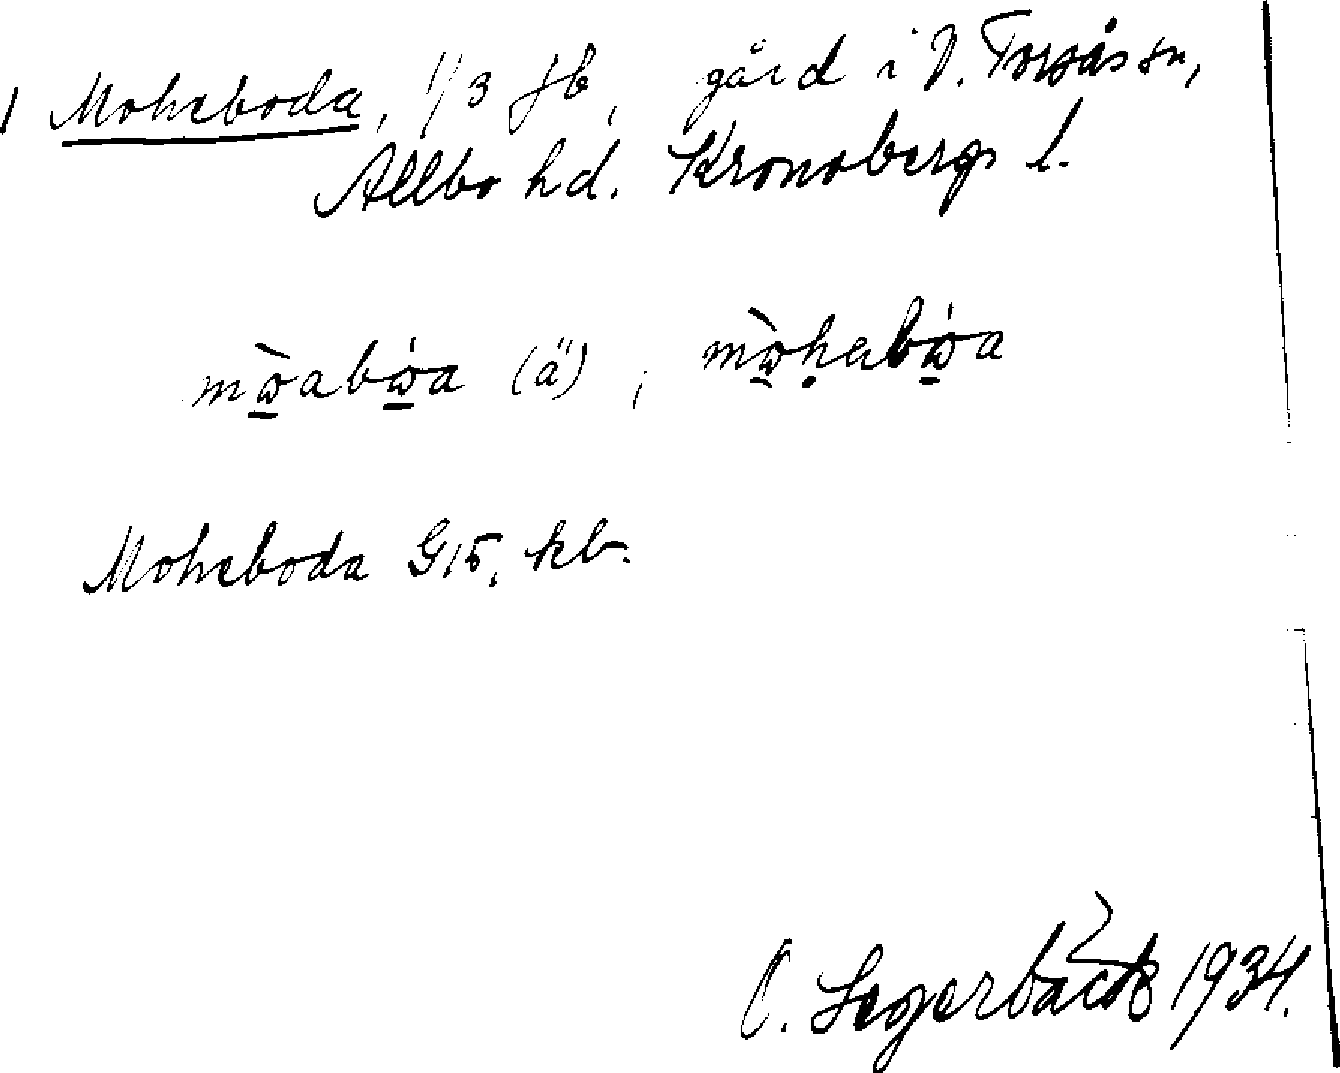 1 Moheboda, 1/3 jb, gård i V. Torsås sn,
Allbo hd. Kronobergs l.
mὼ̲abώ̲a (ä), mὼ̲ḥabώ̲a
Moheboda G15, kb.
O. Segerbäck 1934.